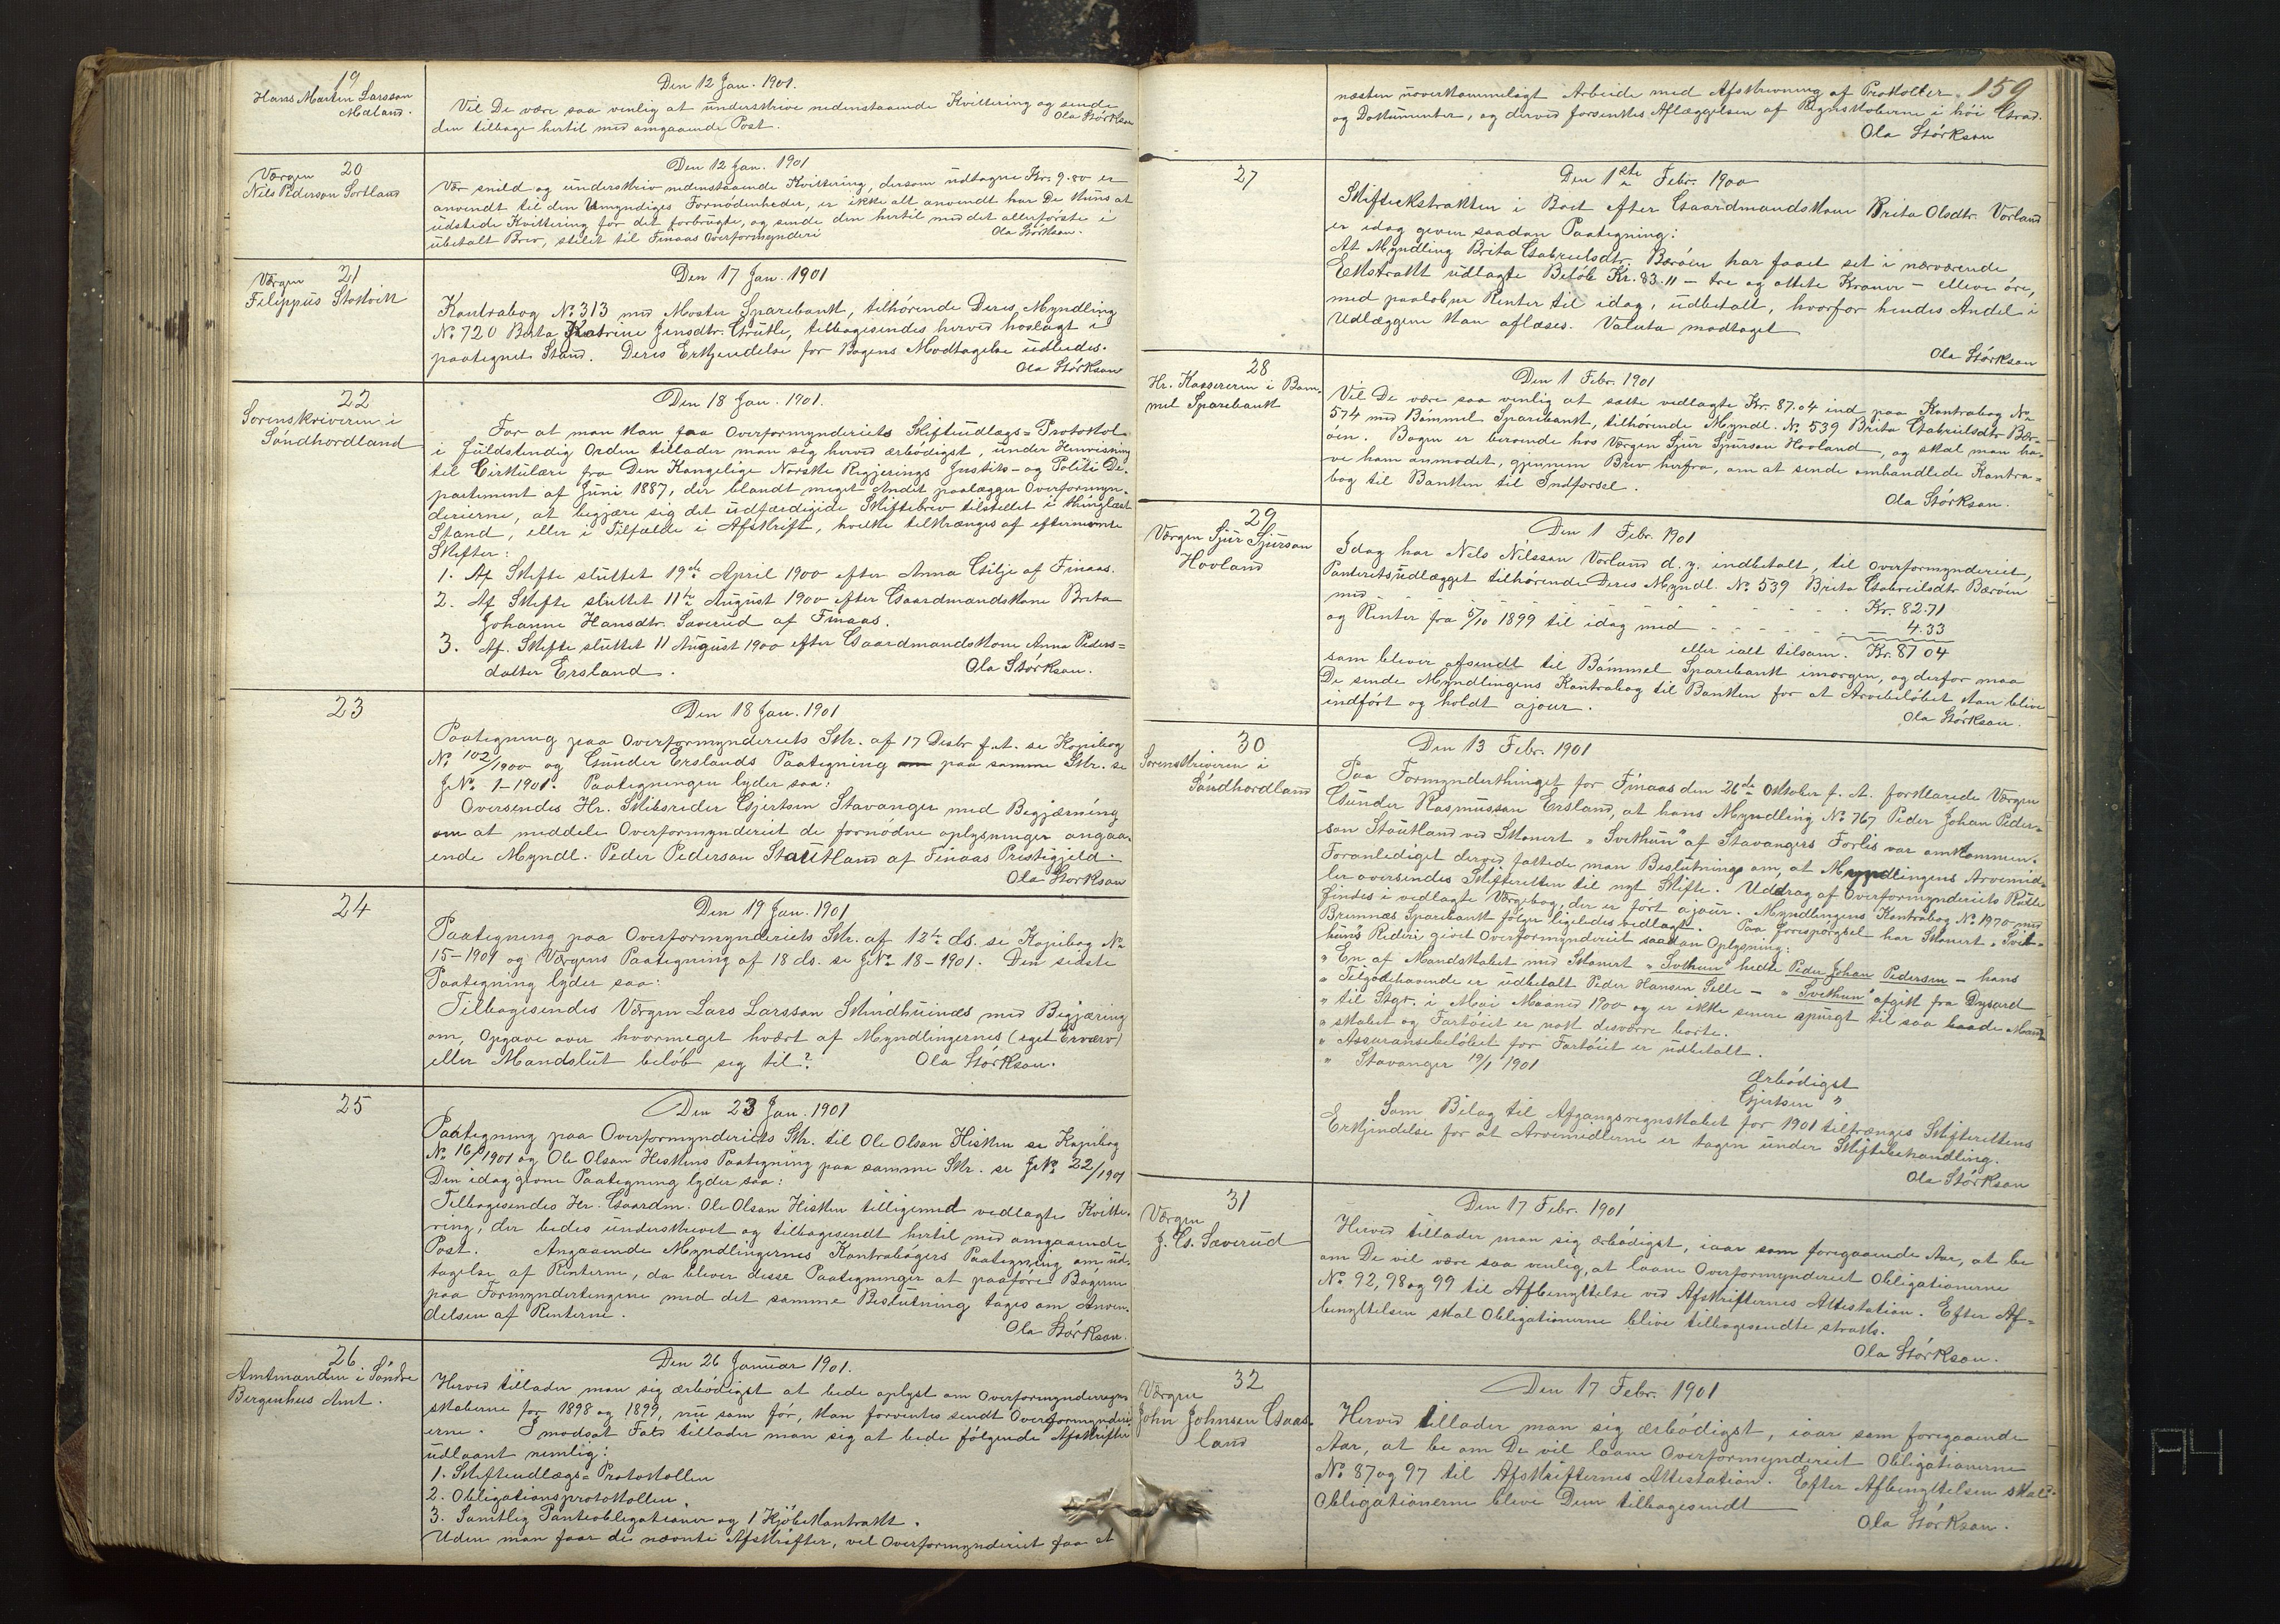 19
Hans Martin Larsson
Mæland.
Den 12 Jan. 1901.
Vil De være saa venlig at underskrive nedenstaaende Kvittering og sende
den tilbage hertil med omgaaende Post.
Ola Störkson
20
Værgen
Nils Pederson Sortland
Den 12 Jan. 1901
Vær snild og underskriv nedenstaaende Kvittering, dersom udtagne Kr. 9.80 er
anvendt til den Umyndiges Fornödenheder, er ikke alt anvendt har De kuns at
udstede Kvittering for det forbrugte, og sende den hertil med det allerförste i
ubetalt Brev, stilet til Finaas Overformynderi
Ola Störkson.
21
Værgen
Filippus Stokvik
Den 17 Jan. 1901
Kontrabog No 313 med Moster Sparebank, tilhörende Deres Myndling
No 720 Berta Katrine Jensdtr. Grutle, tilbagesendes herved hoslagt i
paategnet Stand. Deres Erkjendelse for Bogens Modtagelse udbedes.
Ola Störkson
22
Sorenskriveren i
Söndhordland
Den 18 Jan. 1901.
For at man kan faa Overformynderiets Skifteudlægs-Protokol
i fuldstendig Orden tillader man sig herved ærbödigst, under Henvisning
til Cirkulære fra Den Kongelige Norske Regjerings Justits- og Politi De-
partement af Juni 1887, der blandt meget Andet paalægger Overformyn-
derierne, at begjære sig det udfærdigede Skiftebrev tilstellet i thinglæst
Stand, eller i Tilfælde i Afskrift, hvilke tiltrænges af efternevnte
Skifter:
1. Af Skifte sluttet 19de April 1900 efter Anna Gilje af Finaas.
2. Af Skifte sluttet 11te August 1900 efter Gaardmandskone Brita
Johanne Hansdtr. Sæverud af Finaas.
3. Af. Skifte sluttet 11 August 1900 efter Gaardmandskone Anna Peders-
datter Ersland.
Ola Störkson.
23
Den 18 Jan. 1901
Paategning paa Overformynderiets Skr. af 17 Desbr f.A. se Kopibog
No 102/1900 og Gunder Erslands Paategning paa samme Skr. se
JNo 1-1901. Paategningen lyder saa:
Oversendes Hr. Skibsreder Gjertsen Stavanger med Begjærning
om at meddele Overformynderiet de fornödne oplysninger angaa-
ende Myndl. Peder Pederson Stautland af Finaas Prestegjeld.
Ola Störkson
24
Den 19 Jan. 1901
Paategning paa Overformynderiets Skr. af 12te ds. se Kopibog No
15-1901 og Værgens Paategning af 18 ds. se JNo 18-1901. Den sidste
Paategning lyder saa:
Tilbagesendes Værgen Lars Larsson Skindhuinæs med Begjæring
om, Opgave over hvormeget hvært af Myndlingernes (eget Erværv)
eller Mandslut belöb sig til?
Ola Störkson.
25
Den 23 Jan. 1901
Paategning paa Overformynderiets Skr. til Ole Olson Hisken se Kopibog
No 16/1901 og Ole Olson Hiskens Paategning paa samme Skr. se JNo 22/1901
Den idag givne Paategning lyder saa:
Tilbagesendes Hr. Gaardm. Ole Olson Hisken tilligemed vedlagte Kvitte-
ring, der bedes underskrevet og tilbagesendt hertil med omgaaende
Post. Angaaende Myndlingernes Kontrabögers Paategning om ud-
tagelse af Renterne, da bliver desse Paategninger at paaföre Bögerne
paa Formyndertingene med det samme Beslutning tages om Anven-
delsen af Renterne.
Ola Störkson.
26
Amtmanden i Söndre
Bergenhus Amt.
Den 26 Januar 1901.
Herved tillader man sig ærbödigst at bede oplyst om Overformynderregn-
skaberne for 1898 og 1899, nu som för, kan forventes sendt Overformynderi-
erne. I modsat Fald tillader man sig at bede fölgende Afskrifter
udlaant nemlig:
1. Skifteudlægs-Protokollen
2. Obligationsprotokollen
3. Samtlig Panteobligationer og 1 Kjöbekontrakt.
Uden man faar de nævnte Afskrifter, vel Overformynderiet faa et
159
næsten uoverkommeligt Arbeide med Afskrivning af Protokoller
og Dokumenter, og derved forsenkes Aflæggelsen af Regnskaberne i höi Grad.
Ola Störkson
27
Den 1ste Febr. 1900
Skifteekstrakten i Boet efter Gaardmandskone Brita Olsdtr. Vorland
er idag given saadan Paategning:
At Myndling Brita Gabrielsdtr. Bæröen har faaet set i nærværende
Ekstrakt udlagte Belöb Kr. 83.11 - tre og ottite Kroner - elleve öre,
med paalobne Renter til idag, udbetalt, hvorfor hendes Andel i
Udlæggene kan aflæses. Valuta modtaget
Ola Störkson
28
Hr. Kassereren i Böm-
mel Sparebank
Den 1 Febr. 1901
Vil De være saa venlig at sætte vedlagte Kr. 87.04 ind paa Kontrabog No
574 med Bömmel Sparebank, tilhörende Myndl. No 539 Brita Gabrielsdtr Bær-
öen. Bogen er beroende hos Værgen Sjur Sjurson Hovland, og skal man ha-
ve ham anmodet, gjennem Brev herfra, om at sende omhandlede Kontra-
bog til Banken til Indförsel.
Ola Störkson.
29
Værgen Sjur Sjurson
Hovland
Den 1 Febr. 1901
Idag har Nels Nilsson Vorland d.y. indbetalt, til Overformynderiet,
Panteretsudlægget tilhörende Deres Myndl. No 539 Brita Gabrielsdtr Bæröen
med - - - Kr. 82.71
og Renter fra 5/10 1899 til idag med - - - 4.33
eller ialt tilsam. Kr. 87 04
som bliver afsendt til Bömmel Sparebank imorgen, og derfor maa
De sende Myndlingens Kontrabog til Banken for at Arvebelöbet kan blive
indfört og holdt ajour.
Ola Störkson.
30
Sorenskriveren i
Söndhordland
Den 13 Febr. 1901
Paa Formynderthinget for Finaas den 26de Oktober f. A. forklarede Værgen
Gunder Rasmusson Ersland, at hans Myndling No 767 Peder Johan Peder-
son Stautland ved Skonert "Svithun" af Stavangers Forlis var omkommen.
Foranlediget derved fattede man Beslutning om, at Myndlingens Arvemid-
ler oversendes Skifteretten til nyt Skifte. Uddrag af Overformynderiets Rulle
findes i vedlagte Værgebog, der er fört ajour. Myndlingens Kontrabog No 1970 med
Bremnæs Sparebank fölger ligeledes vedlagt. Paa Forespörgsel har Skonert "Svit-
huns" Rederi givet Overformynderiet saadan Oplysning:
"En af Mandskabet med Skonert "Svithun" hedte Peder Johan Pedersen - hans
"Tilgodehavende er udbetalt Peder Hansen Selle - "Svithun" afgik fra Dysard
"til Stgr. i Mai Maaned 1900 og er ikke senere spurgt til saa baade Mand-
"skabet og Fartöiet er nok desværre borte.
"Assuransebelöbet for Fartöiet er udbetalt.
" Stavanger 19/1 1901
Ærbödigst
Gjertsen "
Som Bilag til Afgangsregnskabet for 1901 tiltrænges Skifterettens
Erkjendelse for at Arvemidlerne er tagen under Skiftebehandling.
Ola Störkson
31
Værgen
J. G. Sæverud
Den 17 Febr. 1901
Herved tillader man sig ærbödigst, iaar som foregaaende Aar, at be
om De vil være saa venlig, at laane Overformynderiet Obligationerne
No 92, 98 og 99 til Afbenyttelse ved Afskrifternes Attestation. Efter Af-
benyttelsen skal Obligationerne blive tilbagesendte straks.
Ola Störkson.
32
Værgen
John Johnson Gaas-
land
Den 17 Febr. 1901
Herved tillader man sig ærbödigst, iaar som foregaaende
Aar, at be om De vil laane Overformynderiet Obligationerne
No 87 og 97 til Afskrifternes Attestation. Efter Afbenyttelsen skal
Obligationerne bleve Dem tilbagesendt
Ola Störkson.